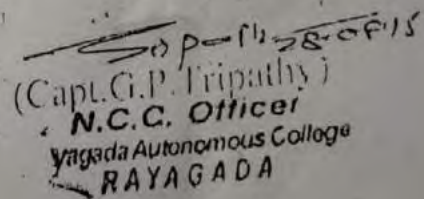 28.08.15
(Capt.G.P.Tripathy)
N.C.C. Officer
yagada Autonomous College
RAYAGADA